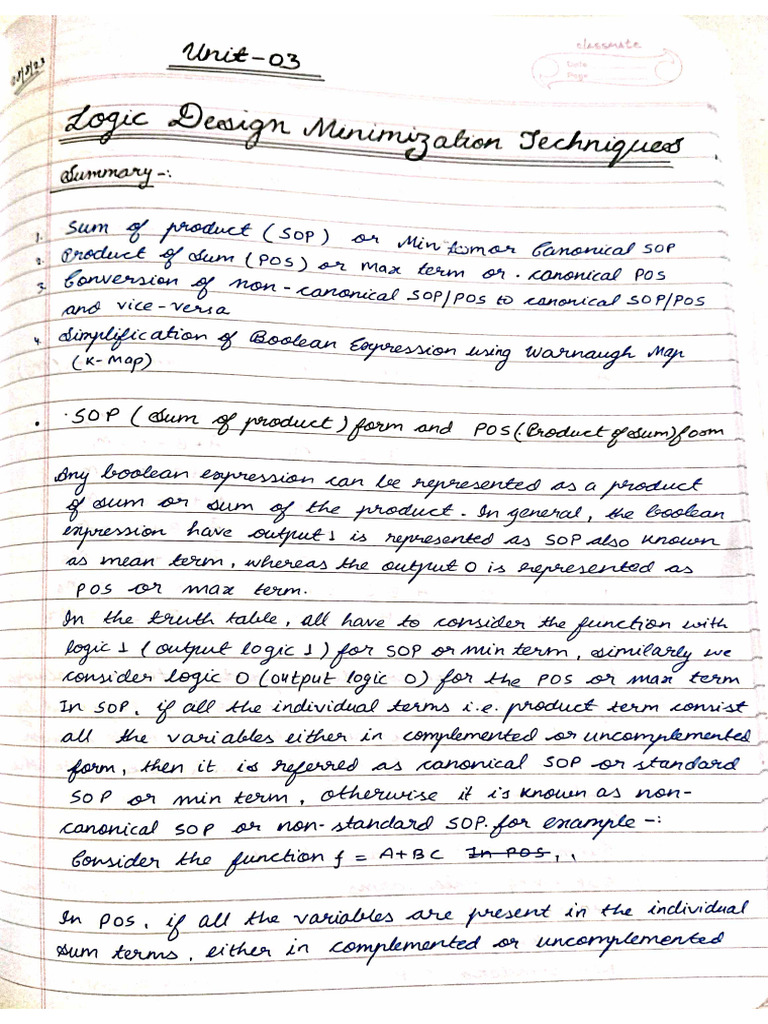 Unit-03
classmate
Date
Page
Logic Design Minimization Techniques
Summary -:
1. Sum of product (SOP) or Min term or Canonical SOP
2. Product of Sum (POS) or max term or . canonical POS
3. Conversion of non-canonical SOP/POS to canonical SOP/POS
and vice-versa
4. Simplification of Boolean Expression using Warnaugh Map
(K-Map)
• SOP (Sum of product) form and POS (Product of Sum) form
Any boolean expression can be represented as a product
of sum or sum of the product. In general, the boolean
expression have output 1 is represented as SOP also known
as mean term, whereas the output 0 is represented as
POS or max term.
In the truth table, all have to consider the function with
logic 1 (output logic 1) for SOP or min term, similarly we
consider logic 0 (output logic 0) for the POS or max term
In SOP, if all the individual terms i.e. product term consist
all the variables either in complemented or uncomplemented
form, then it is referred as canonical SOP or standard
SOP or min term, otherwise it is known as non-
canonical SOP or non-standard SOP. for example -:
Consider the function f = A+BC In POS, .
In POS, if all the variables are present in the individual
sum terms, either in complemented or uncomplemented